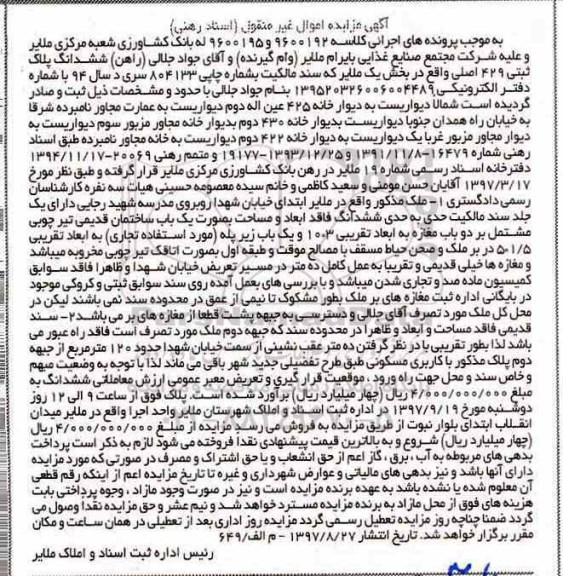 آگهی مزایده اموال غیر منقول (اسناد رهنی)
به موجب پرونده های اجرائی کلاسه ۹۶۰۰۱۹۲ و ۹۶۰۰۱۹۵ له بانک کشاورزی شعبه مرکزی ملایر
و علیه شرکت مجتمع صنایع غذایی بایرام ملایر (وام گیرنده) و آقای جواد جلالی (راهن) ششدانگ پلاک
ثبتی ۴۲۹ اصلی واقع در بخش یک ملایر که سند مالکیت بشماره چاپی ۸۰۴۱۳۳ سری د سال ۹۴ با شماره
دفتر الکترونیکی ۱۳۹۵۲۰۳۲۶۰۰۶۰۰۴۴۸۹ بنام جواد جلالی با حدود و مشخصات ذیل ثبت و صادر
گردیده است شمالا دیواریست به دیوار خانه ۴۲۵ عین اله دوم دیواریست به عمارت مجاور نامبرده شرقا
به خیابان راه همدان جنوبا دیواریست بدیوار خانه ۴۳۰ دوم بدیوار خانه مجاور مزبور سوم دیواریست به
دیوار مجاور مزبور غربا یک دیواریست به دیوار خانه ۴۲۲ دوم دیواریست به خانه مجاور نامبرده طبق اسناد
رهنی شماره ۱۶۴۷۹-۱۳۹۱/۱۱/۸ و ۱۹۱۷۷-۱۳۹۳/۱۲/۲۵ و متمم رهنی ۲۰۰۶۹-۱۳۹۴/۱۱/۱۷
دفترخانه اسناد رسمی شماره ۱۹ ملایر در رهن بانک کشاورزی مرکزی ملایر قرار گرفته و طبق نظر مورخ
۱۳۹۷/۳/۱۷ آقایان حسن مومنی و سعید کاظمی و خانم سیده معصومه حسینی هیات سه نفره کارشناسان
رسمی دادگستری ۱- ملک مذکور واقع در ملایر ابتدای خیابان شهدا روبروی مدرسه شهید رجایی دارای یک
جلد سند مالکیت حدی به حدی ششدانگ فاقد ابعاد و مساحت بصورت یک باب ساختمان قدیمی تیر چوبی
مشتمل بر دو باب مغازه به ابعاد تقریبی ۳*۱۰ و یک باب زیر پله (مورد استفاده تجاری) به ابعاد تقریبی
۱/۵*۵ در بر ملک و صحن حیاط مسقف با مصالح موقت و طبقه اول بصورت اتاقک تیر چوبی مخروبه میباشد
و مغازه ها خیلی قدیمی و تقریبا به عمل کامل ده متر در مسیر تعریض خیابان شهدا و ظاهرا فاقد سوابق
کمیسیون ماده صد و تجاری شدن میباشد و با بررسی های بعمل آمده روی سند سوابق ثبتی و کروکی موجود
در بایگانی اداره ثبت مغازه های بر ملک بطور مشکوک تا نیمی از عمق در محدوده سند نمی باشند لیکن در
محل کل ملک مورد تصرف آقای جلالی و دسترسی به جبهه پشت قطعا از مغازه های بر می باشد ۲- سند
قدیمی فاقد مساحت و ابعاد و ظاهرا در محدوده سند که جبهه دوم ملک مورد تصرف است فاقد راه عبور می
باشد لذا بطور تقریبی با در نظر گرفتن ده متر عقب نشینی از سمت خیابان شهدا حدود ۱۲۰ مترمربع از جبهه
دوم پلاک مذکور با کاربری مسکونی طبق طرح تفضیلی جدید شهر باقی می ماند لذا با توجه به وضعیت مبهم
و خاص سند و محل جهت راه ورود ، موقعیت قرار گیری و تعریض معبر عمومی ارزش معاملاتی ششدانگ به
مبلغ ۴/۰۰۰/۰۰۰/۰۰۰ ریال (چهار میلیارد ریال) برآورد شده است. پلاک فوق از ساعت ۹ الی ۱۲ روز
دوشنبه مورخ ۱۳۹۷/۹/۱۹ در اداره ثبت اسناد و املاک شهرستان ملایر واحد اجرا واقع در ملایر میدان
انقلاب ابتدای بلوار نبوت از طریق مزایده به فروش می رسد. مزایده از مبلغ ۴/۰۰۰/۰۰۰/۰۰۰ ریال
(چهار میلیارد ریال) شروع و به بالاترین قیمت پیشنهادی نقدا فروخته می شود لازم به ذکر است پرداخت
بدهی های مربوطه به آب ، برق ، گاز اعم از حق انشعاب و یا حق اشتراک و مصرف در صورتی که مورد مزایده
دارای آنها باشد و نیز بدهی های مالیاتی و عوارض شهرداری و غیره تا تاریخ مزایده اعم از اینکه رقم قطعی
آن معلوم شده یا نشده باشد به عهده برنده مزایده است و نیز در صورت وجود مازاد ، وجوه پرداختی بابت
هزینه های فوق از محل مازاد به برنده مزایده مسترد خواهد شد و نیم عشر و حق مزایده نقدا وصول می
گردد ضمنا چنانچه روز مزایده تعطیل رسمی گردد مزایده روز اداری بعد از تعطیلی در همان ساعت و مکان
مقرر برگزار خواهد شد. تاریخ انتشار ۱۳۹۷/۸/۲۷ - م الف/۶۴۹
رئیس اداره ثبت اسناد و املاک ملایر